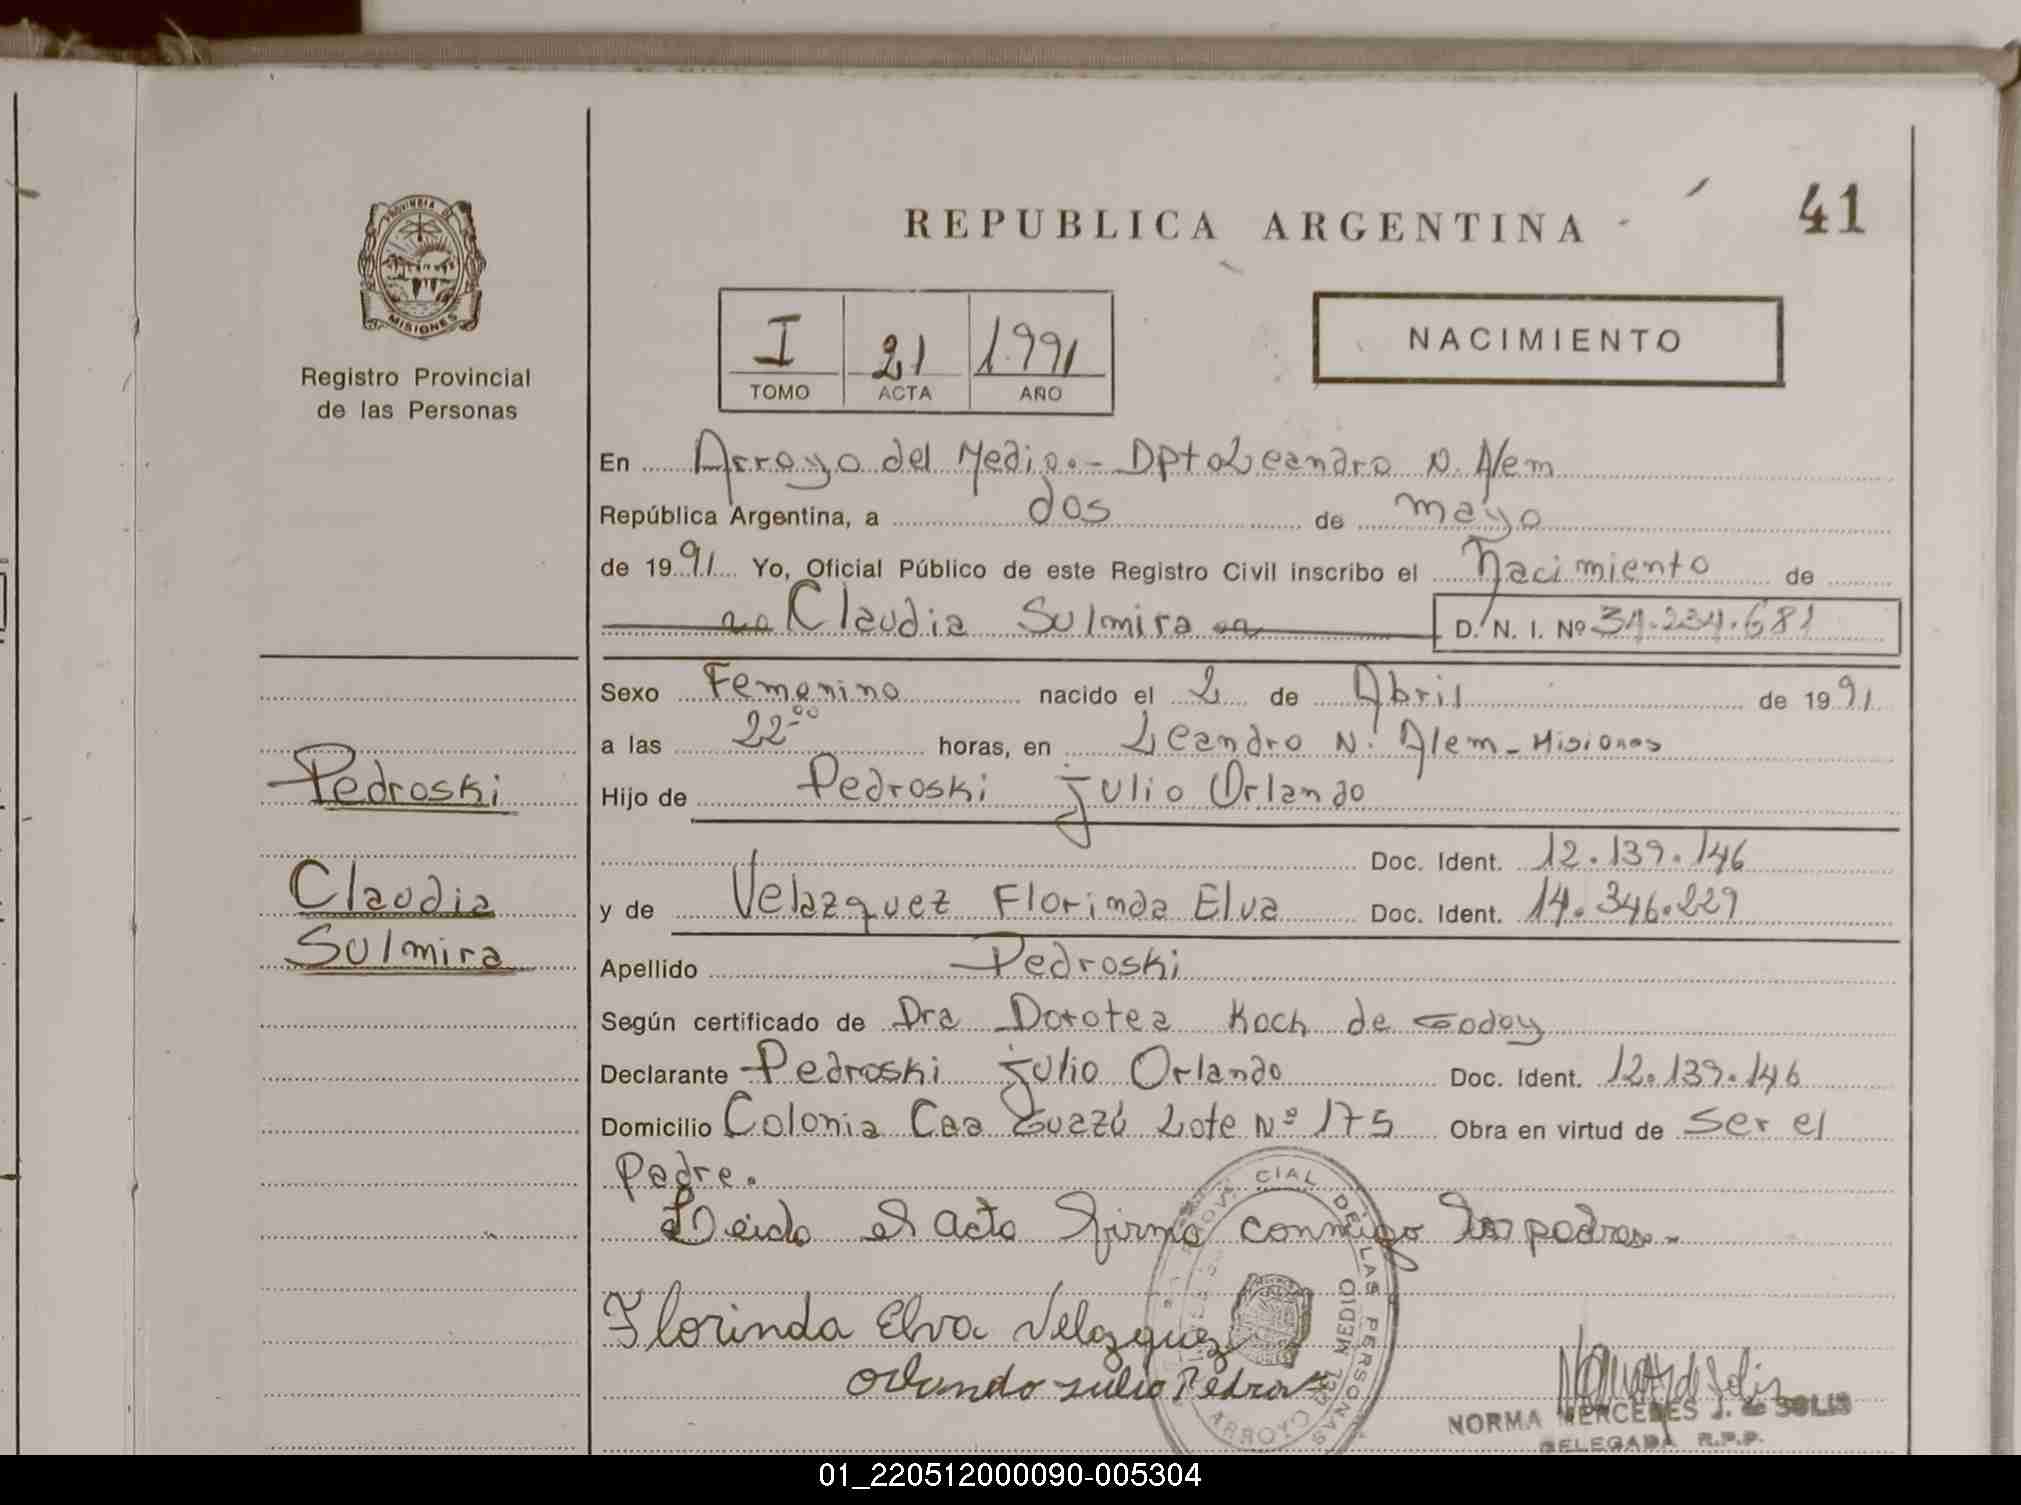 REPUBLICA ARGENTINA
41
PROVINCIA DE
MISIONES
Registro Provincial
de las Personas
I 21 1991
TOMO ACTA AÑO
NACIMIENTO
En Arroyo del Medio.- Dpto Leandro N. Alem
República Argentina, a dos de mayo
de 1991 Yo, Oficial Público de este Registro Civil inscribo el Nacimiento de
Claudia Sulmira D. N. I. Nº
Sexo Femenino nacido el 2 de Abril de 1991
a las 22-00 horas, en Leandro N. Alem - Misiones
Pedroski
Hijo de Pedroski Julio Orlando
Doc. Ident. 12.139.146
Claudia
y de Velazquez Florinda Elva Doc. Ident. 14.346.229
Sulmira
Apellido Pedroski
Según certificado de Dra Dorotea Koch de Godoy
Declarante Pedroski Julio Orlando Doc. Ident. 12.139.146
Domicilio Colonia Caa Guazú Lote Nº 175 Obra en virtud de ser el
Padre.
Leido el acto firma conmigo los padres.-
CIAL DE LAS PERSONAS
ARROYO DEL MEDIO
Florinda Elva Velazquez
Orlando Julio
NORMA MERCEDES J. de SOLIS
DELEGADA R.P.P.
01_220512000090-005304